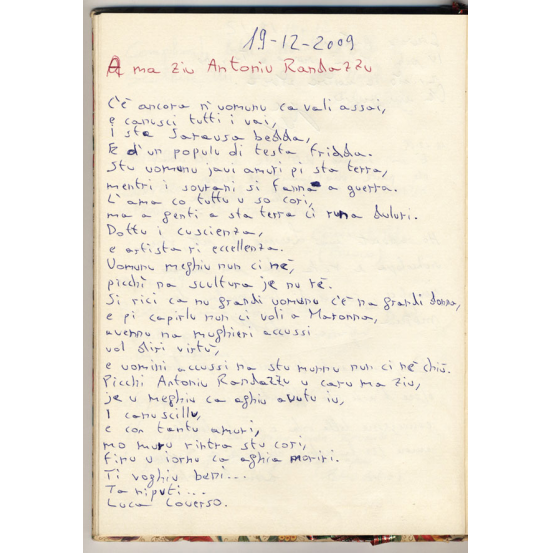 19-12-2009
A ma ziu Antoniu Randazzu
C'è ancora n'uomunu ca vali assai,
e canusci tutti i vai,
I sta Sarausa bedda,
E d'un populu di testa fridda.
Stu uomunu javi amuri pi sta terra,
mentri i sovrani si fanna a guerra.
L'ama co tuttu u so cori,
ma a genti a sta terra ci runa duluri.
Dottu i cuscienza,
e artista ri eccellenza.
Uomunu meghiu nun ci nè,
picchì na scultura je nu rè.
Si rici ca nu grandi uomunu c'è na grandi donna,
e pi capirlu nun ci voli a Maronna,
avennu na mughieri accussì
vol diri virtù,
e uomini accussì na stu munnu nun ci nè chiù.
Picchì Antoniu Randazzu u caru ma ziu,
je u meghiu ca aghiu avutu iu,
I canuscillu,
e con tantu amuri,
mo muru rintra stu cori,
finu u iornu ca aghia moriri.
Ti voghiu beni...
Ta niputi...
Luca Loverso.